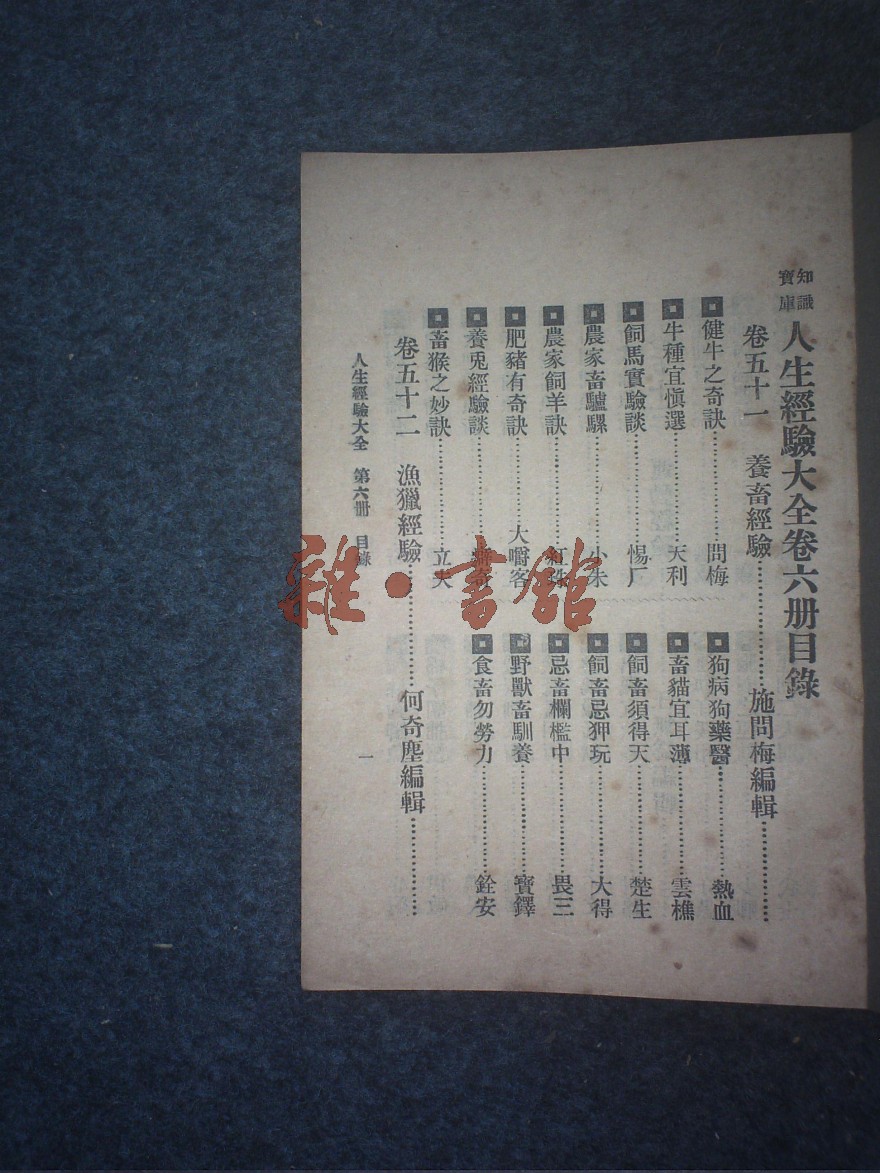 知識寶庫 人生經驗大全卷六册目錄
卷五十一 養畜經驗………………施問梅編輯………………
健牛之奇訣………………問梅
牛種宜慎選………………天利
飼馬實驗談………………惕厂
農家畜驢騾………………小朱
農家飼羊訣………………紅珠
肥豬有奇訣………………大嚼客
養兎經驗談………………癖奇
畜猴之妙訣………………立夫
狗病狗藥醫………………熱血
畜貓宜耳薄………………雲樵
飼畜須得天………………楚生
飼畜忌狎玩………………大得
忌畜欄檻中………………畏三
野獸畜馴養………………寶鐸
食畜勿勞力………………銓安
卷五十二 漁獵經驗………………何奇塵編輯………………
人生經驗大全 第六册 目錄
一
雜·書館